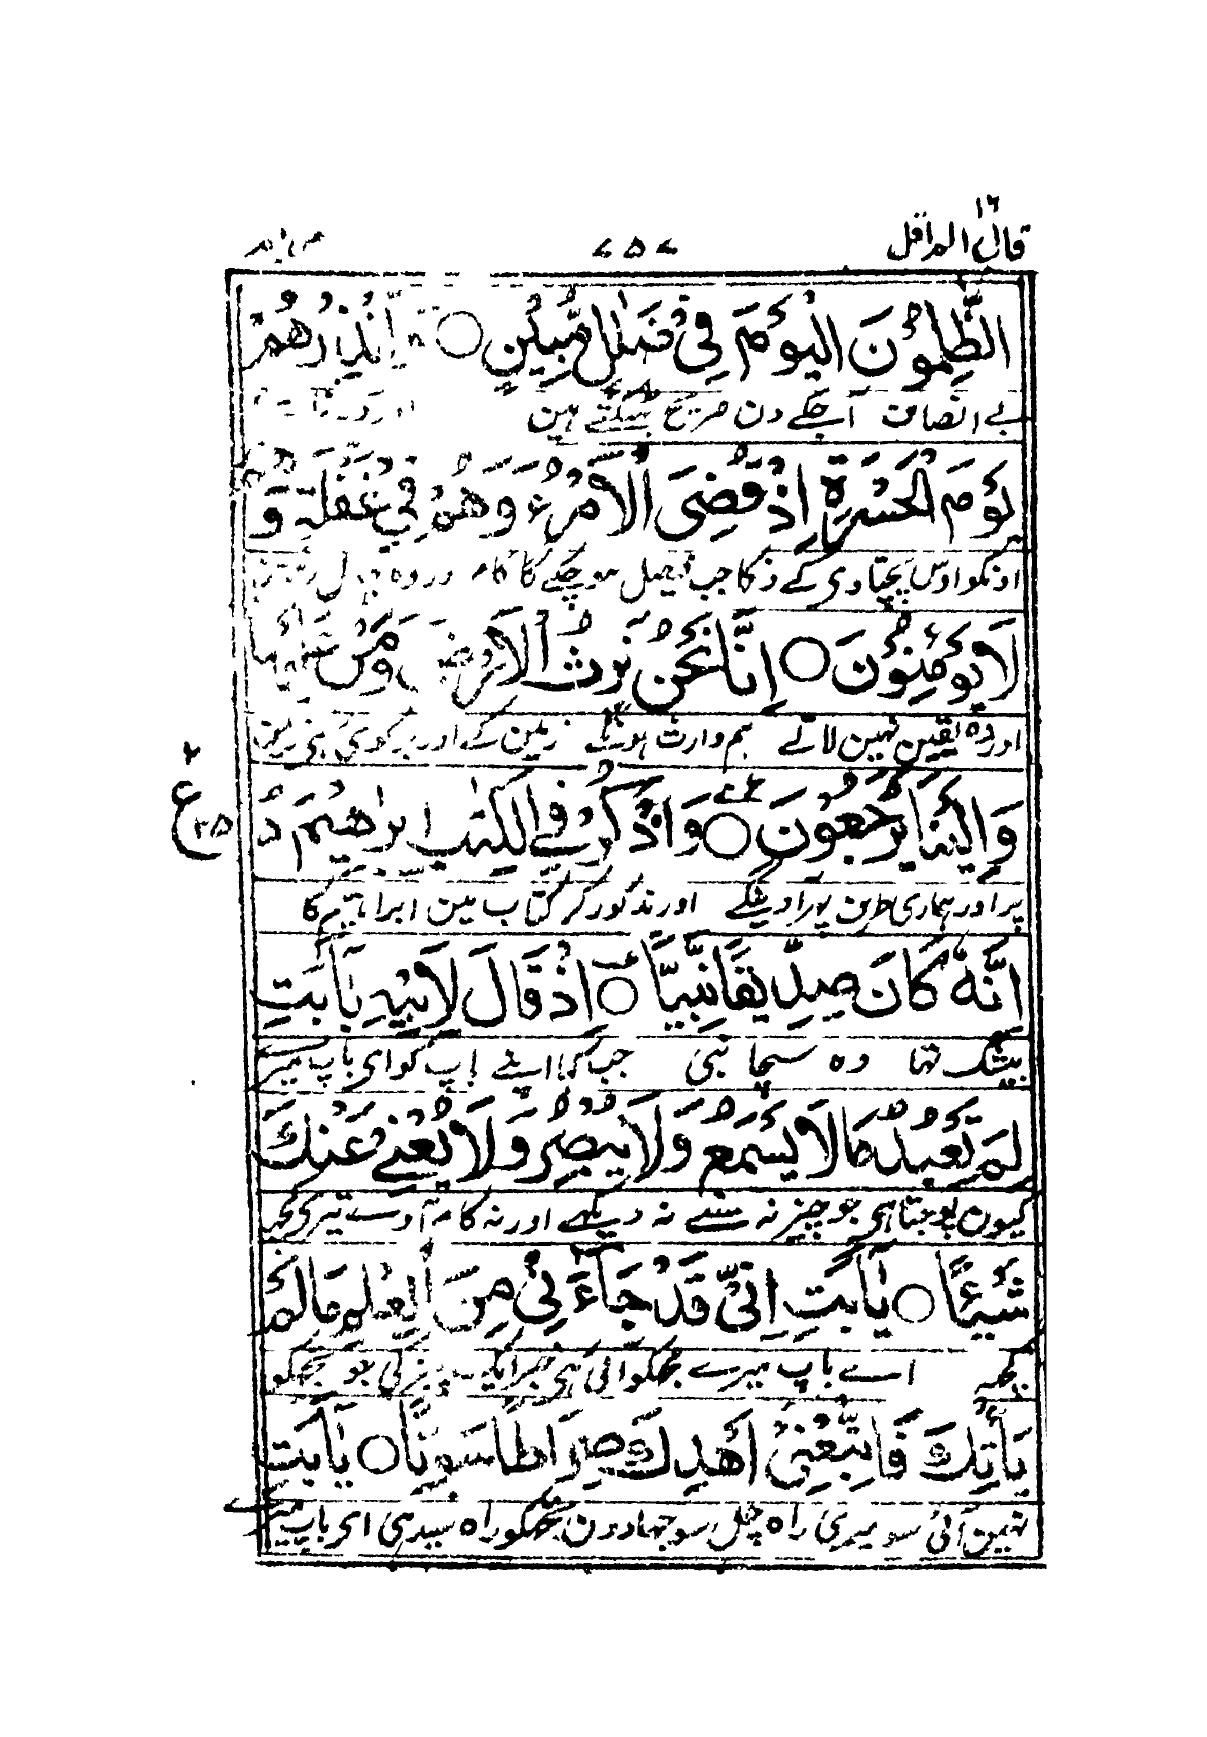 ١٦
قال الم اقل ٧٥٧ مریم
الظّٰلِمُوْنَ الْیَوْمَ فِیْ ضَلٰلٍ مُّبِیْنٍ ○ وَ اَنْذِرْهُمْ
بے انصاف آجکے دن صریح بھٹکتے ہین اور
یَوْمَ الْحَسْرَةِ اِذْ قُضِیَ الْاَمْرُ وَهُمْ فِیْ غَفْلَةٍ وَّ هُمْ
اونکو اوس پچتاوی کے دن کا جب فیصل ہو چکے گا کام اور وہ
لَا یُؤْمِنُوْنَ ○ اِنَّا نَحْنُ نَرِثُ الْاَرْضَ وَمَنْ عَلَیْهَا
اور وہ یقین نہین لاتے ہم وارث ہونگے زمین کے اور جو کوئی ہی زمین
وَاِلَیْنَا یُرْجَعُوْنَ ○ وَاذْكُرْ فِی الْكِتٰبِ اِبْرٰهِیْمَ ڛ
ع ٢ ٢٥
پر اور ہماری طرف پھر آوینگے اور مذکور کر کتاب مین ابراہیم کا
اِنَّهٗ كَانَ صِدِّیْقًا نَّبِیًّا ○ اِذْ قَالَ لِاَبِیْهِ یٰۤاَبَتِ
بیشک تھا وہ سچا نبی جب کہا اپنے باپ کو ای باپ میرے
لِمَ تَعْبُدُ مَا لَا یَسْمَعُ وَلَا یُبْصِرُ وَلَا یُغْنِیْ عَنْكَ
کیون پوجتا ہی جو چیز نہ سنے نہ دیکھے اور نہ کام آوے تیری کچھ
شَیْئًا ○ یٰۤاَبَتِ اِنِّیْ قَدْ جَآءَنِیْ مِنَ الْعِلْمِ مَا لَمْ
کچھ اے باپ میرے مجھکو آئی ہی خبر ایک چیز کی جو تجھکو
یَاْتِكَ فَاتَّبِعْنِیْۤ اَهْدِكَ صِرَاطًا سَوِیًّا ○ یٰۤاَبَتِ
نہین آئی سو میری راہ چل سوجھادون تجھکو راہ سیدھی ای باپ میرے